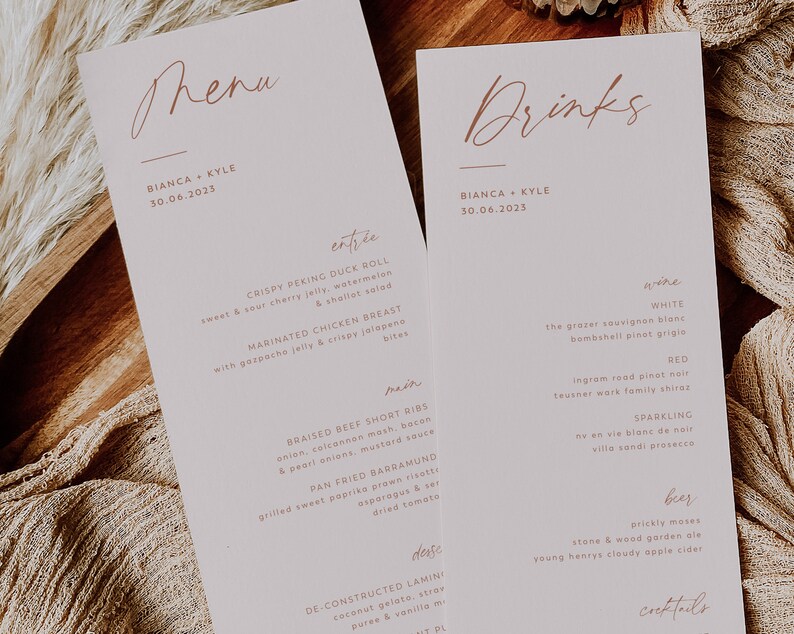 Menu
BIANCA + KYLE
30.06.2023
entrée
CRISPY PEKING DUCK ROLL
sweet & sour cherry jelly, watermelon
& shallot salad
MARINATED CHICKEN BREAST
with gazpacho jelly & crispy jalapeno
bites
main
BRAISED BEEF SHORT RIBS
onion, colcannon mash, bacon
& pearl onions, mustard sauce
PAN FRIED BARRAMUND
grilled sweet paprika prawn risotto
asparagus & 
dried tomato
DE-CONSTRUCTED LAMING
coconut gelato, straw
puree & vanilla m
Drinks
BIANCA + KYLE
30.06.2023
wine
WHITE
the grazer sauvignon blanc
bombshell pinot grigio
RED
ingram road pinot noir
teusner wark family shiraz
SPARKLING
nv en vie blanc de noir
villa sandi prosecco
beer
prickly moses
stone & wood garden ale
young henrys cloudy apple cider
cocktails